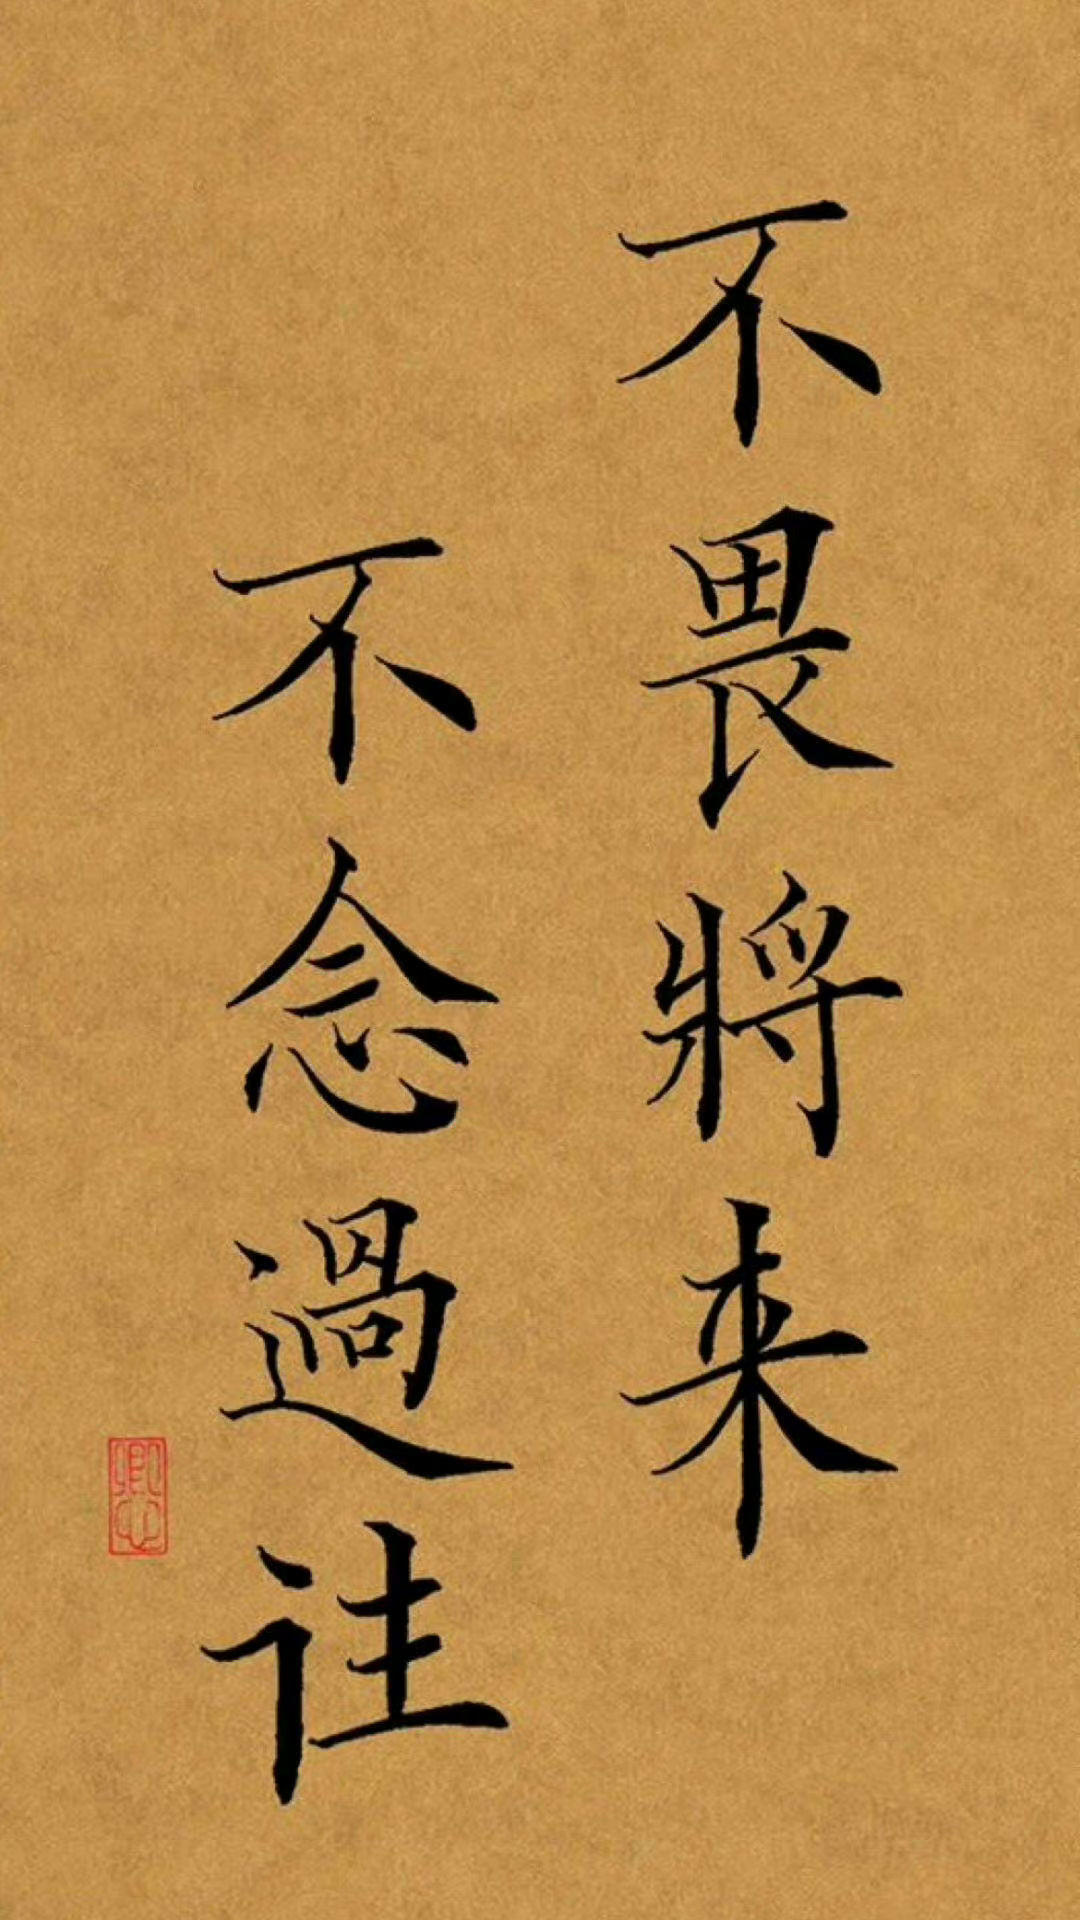 不畏將来
不念過往